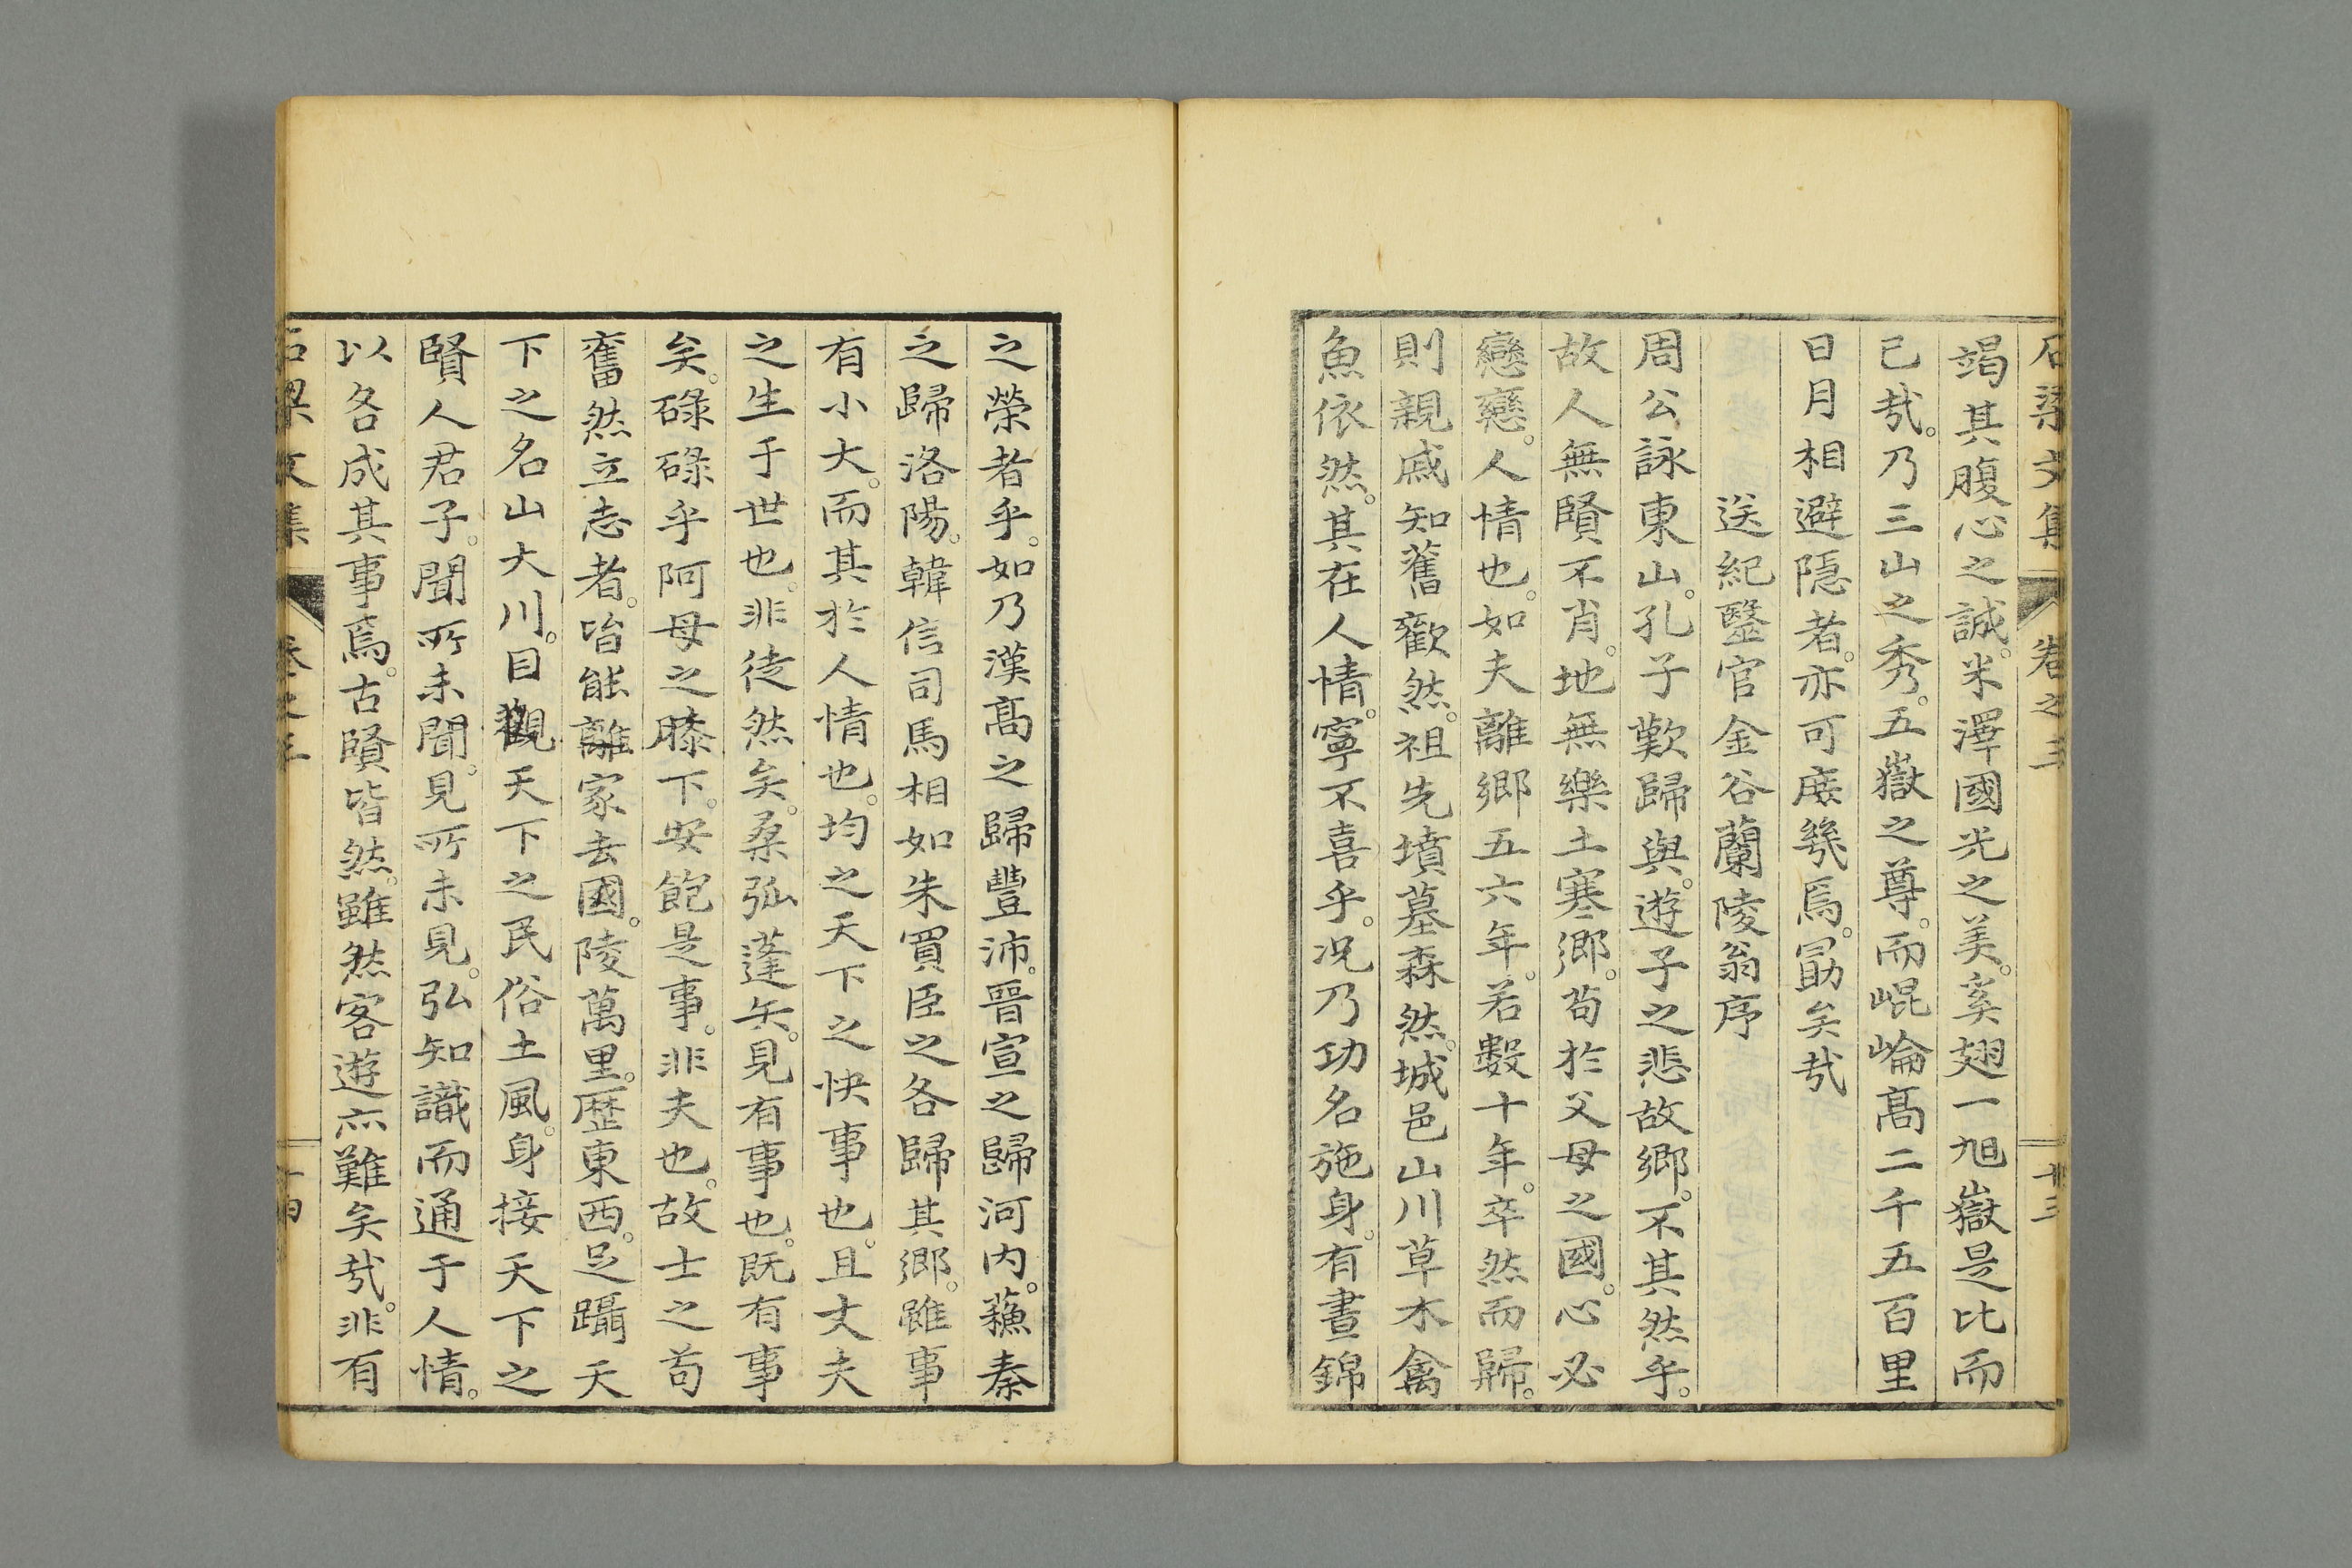 石梁文集 卷之三 十三
竭其腹心之誠。米澤國光之美。奚翅一旭嶽是比而
已哉。乃三山之秀。五嶽之尊。而崐崘髙二千五百里
日月相避隠者。亦可庻幾焉。勗矣哉
送紀毉官金谷蘭陵翁序
周公詠東山。孔子歎歸與。遊子之悲故鄉。不其然乎。
故人無賢不肖。地無樂土寒鄉。苟於父母之國。心必
戀戀。人情也。如夫離鄉五六年。若數十年。卒然而歸。
則親戚知舊歡然。祖先墳墓森然。城邑山川草木禽
魚依然。其在人情。寧不喜乎。况乃功名施身。有晝錦
之榮者乎。如乃漢髙之歸豐沛。晉宣之歸河内。蘓秦
之歸洛陽。韓信司馬相如朱買臣之各歸其鄉。雖事
有小大。而其於人情也。均之天下之快事也。且丈夫
之生于世也。非徒然矣。桑弧蓬矢。見有事也。既有事
矣。碌碌乎阿母之膝下。安飽是事。非夫也。故士之苟
奮然立志者。皆能離家去國。陵萬里。歴東西。足躡天
下之名山大川。目觀天下之民俗土風。身接天下之
賢人君子。聞所未聞。見所未見。弘知識而通于人情。
以各成其事焉。古賢皆然。雖然客遊亦難矣哉。非有
石梁文集 卷之三 十四